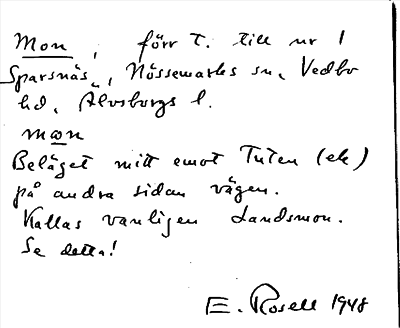 Mon, förr t. till nr 1
Sparsnäs, Nössemarks sn, Vedbo
hd, Älvsborgs l.
mon
Beläget mitt emot Tuten (ek)
på andra sidan vägen.
Kallas vanligen Landsmon.
Se detta!
E. Rosell 1948